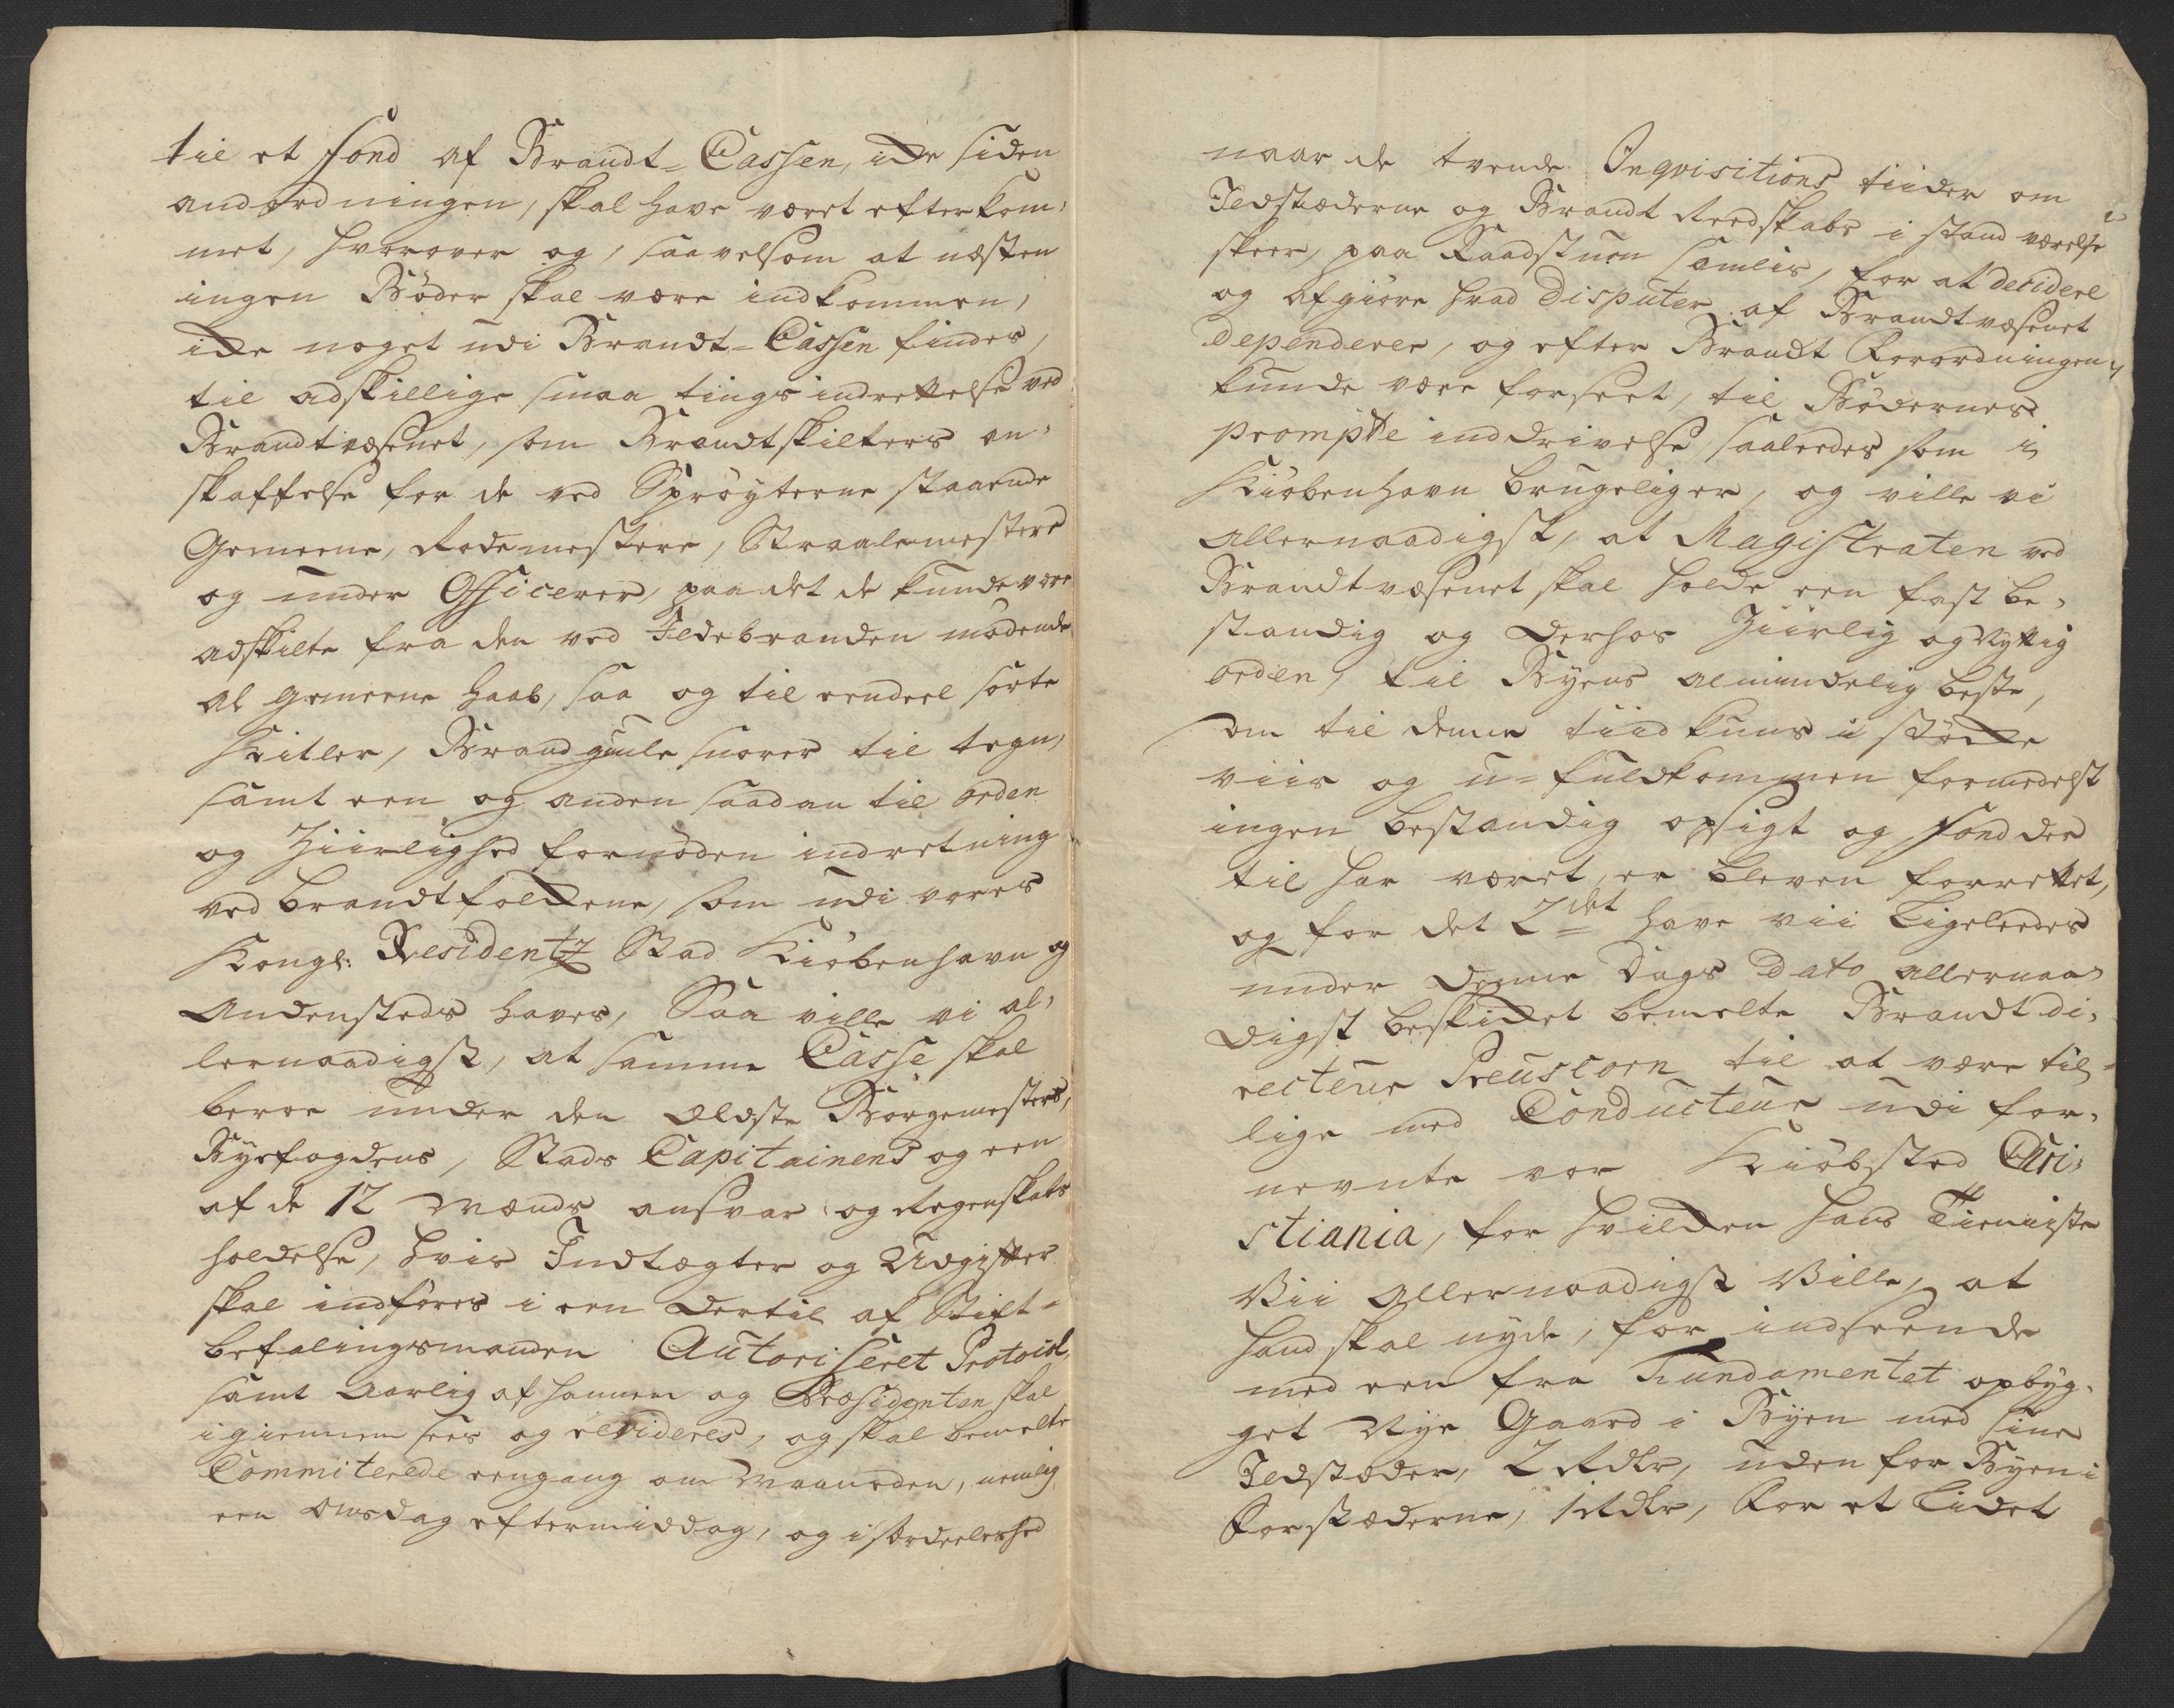 til et fond af Brandt-Cassen, icke siden
andordningen, skal have været efterkom-
met, hvorover og, saavelsom at næsten
ingen Bøder skal være indkommen,
icke noget udi Brandt-Cassen findes,
til adskillige smaa tings indrettelse ved
Brandtvæsenet, som Brandtskilters an-
skaffelse for de ved Sprøyterne staaende
Gemeene, Rodemestere, Straalemestere
og under Officerer, paa det de kunde være
adskilte fra den ved Ildebranden mødende
al gemeene haab, saa og til eendeel sorte
Kitler, Brandguule snorer til tegn,
samt een og anden saadan til orden
og Ziirlighed fornøden indretning
ved brandtfolckene, som udi vores
Kongl: Residentz Stad Kiøbenhavn og
Andensteds haves, Saa ville vi al-
lernaadigst, at samme Casse skal
beroe under den Ældste Borgemesters,
Byefogdens, Stads Capitainens og een
af de 12 Mænds ansvar og Regenskabs
holdelse, hvis Indtægter og Udgifter
skal indføres i een dertil af Stift-
befalingsmanden Autoriseret Protocol,
samt Aarlig af hannem og Præsidenten skal
igiennemsees og revideres, og skal bemelte
Committerede eengang om Maaneden, nemlig
een Onsdag eftermiddag, og i særdeeleshed
naar de tvende Inqvisitions tiider om
Ildstæderne og Brandt Reedskabs i stand værelse
skeer, paa Raadstuen samles, for at decidere
og afgiøre hvad Disputer af Brandtvæsenet
dependerer, og efter Brandt Forordningen
kunde være forseet, til Bødernes
prompte inddrivelse saaleedes som i
Kiøbenhavn brugelig er, og ville vi
allernaadigst, at Magistraten ved
Brandtvæsenet skal holde een fast be-
standig og derhos Ziirlig og Nyttig
orden, til Byens almindelig beste,
som til denne tiid kuns i støcke
viis og u-fuldkommen formedelst
ingen bestandig opsigt og fond der
til har været, er bleven forrettet,
og for det 2det have vii Ligeleedes
under denne Dags Dato allernaa-
digst beskicket bemelte Brandt di-
recteur Preuscorn til at være til-
lige med Conducteur udi for-
nevnte vor Kiøbsted Chri-
stiania, for hvilcken hans Tieniste
Vii Allernaadigst Ville, at
hand skal nyde, for indseende
med een fra Fundamentet opbyg-
get Nye Gaard i Byen med sine
Ildstæder, 2 Rdlr, uden for Byen i
Forstæderne, 1 Rdlr, For et Lidet